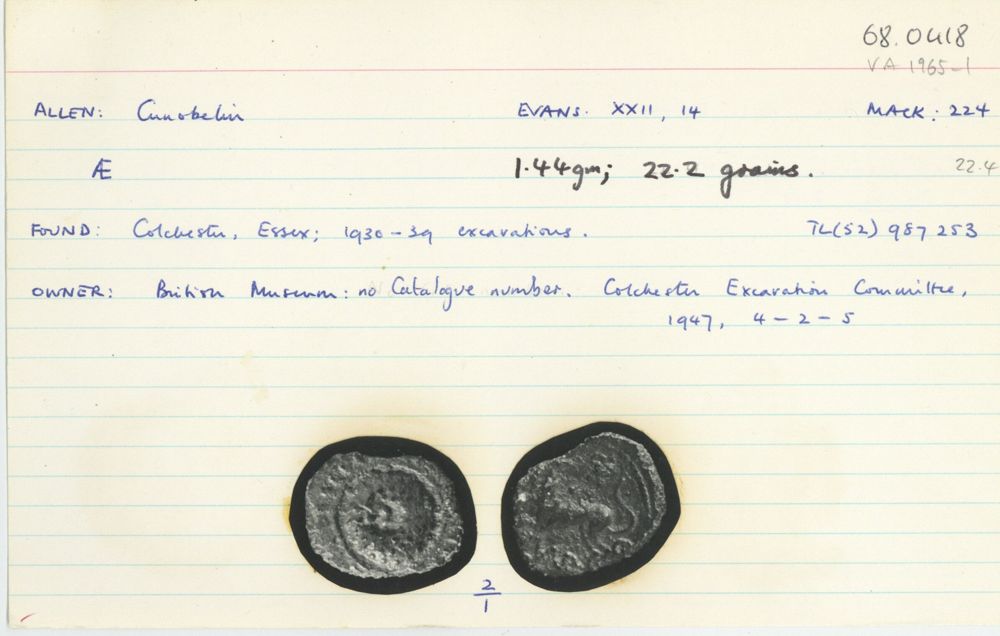 68.0418
VA 1965-1
ALLEN: Cunobelin EVANS. XXII, 14 MACK: 224
Æ 1.44gm; 22.2 grains. 22.4
FOUND: Colchester, Essex; 1930-39 excavations. TL(52) 987 253
OWNER: British Museum: no Catalogue number. Colchester Excavation Committee,
1947, 4-2-5
2
1